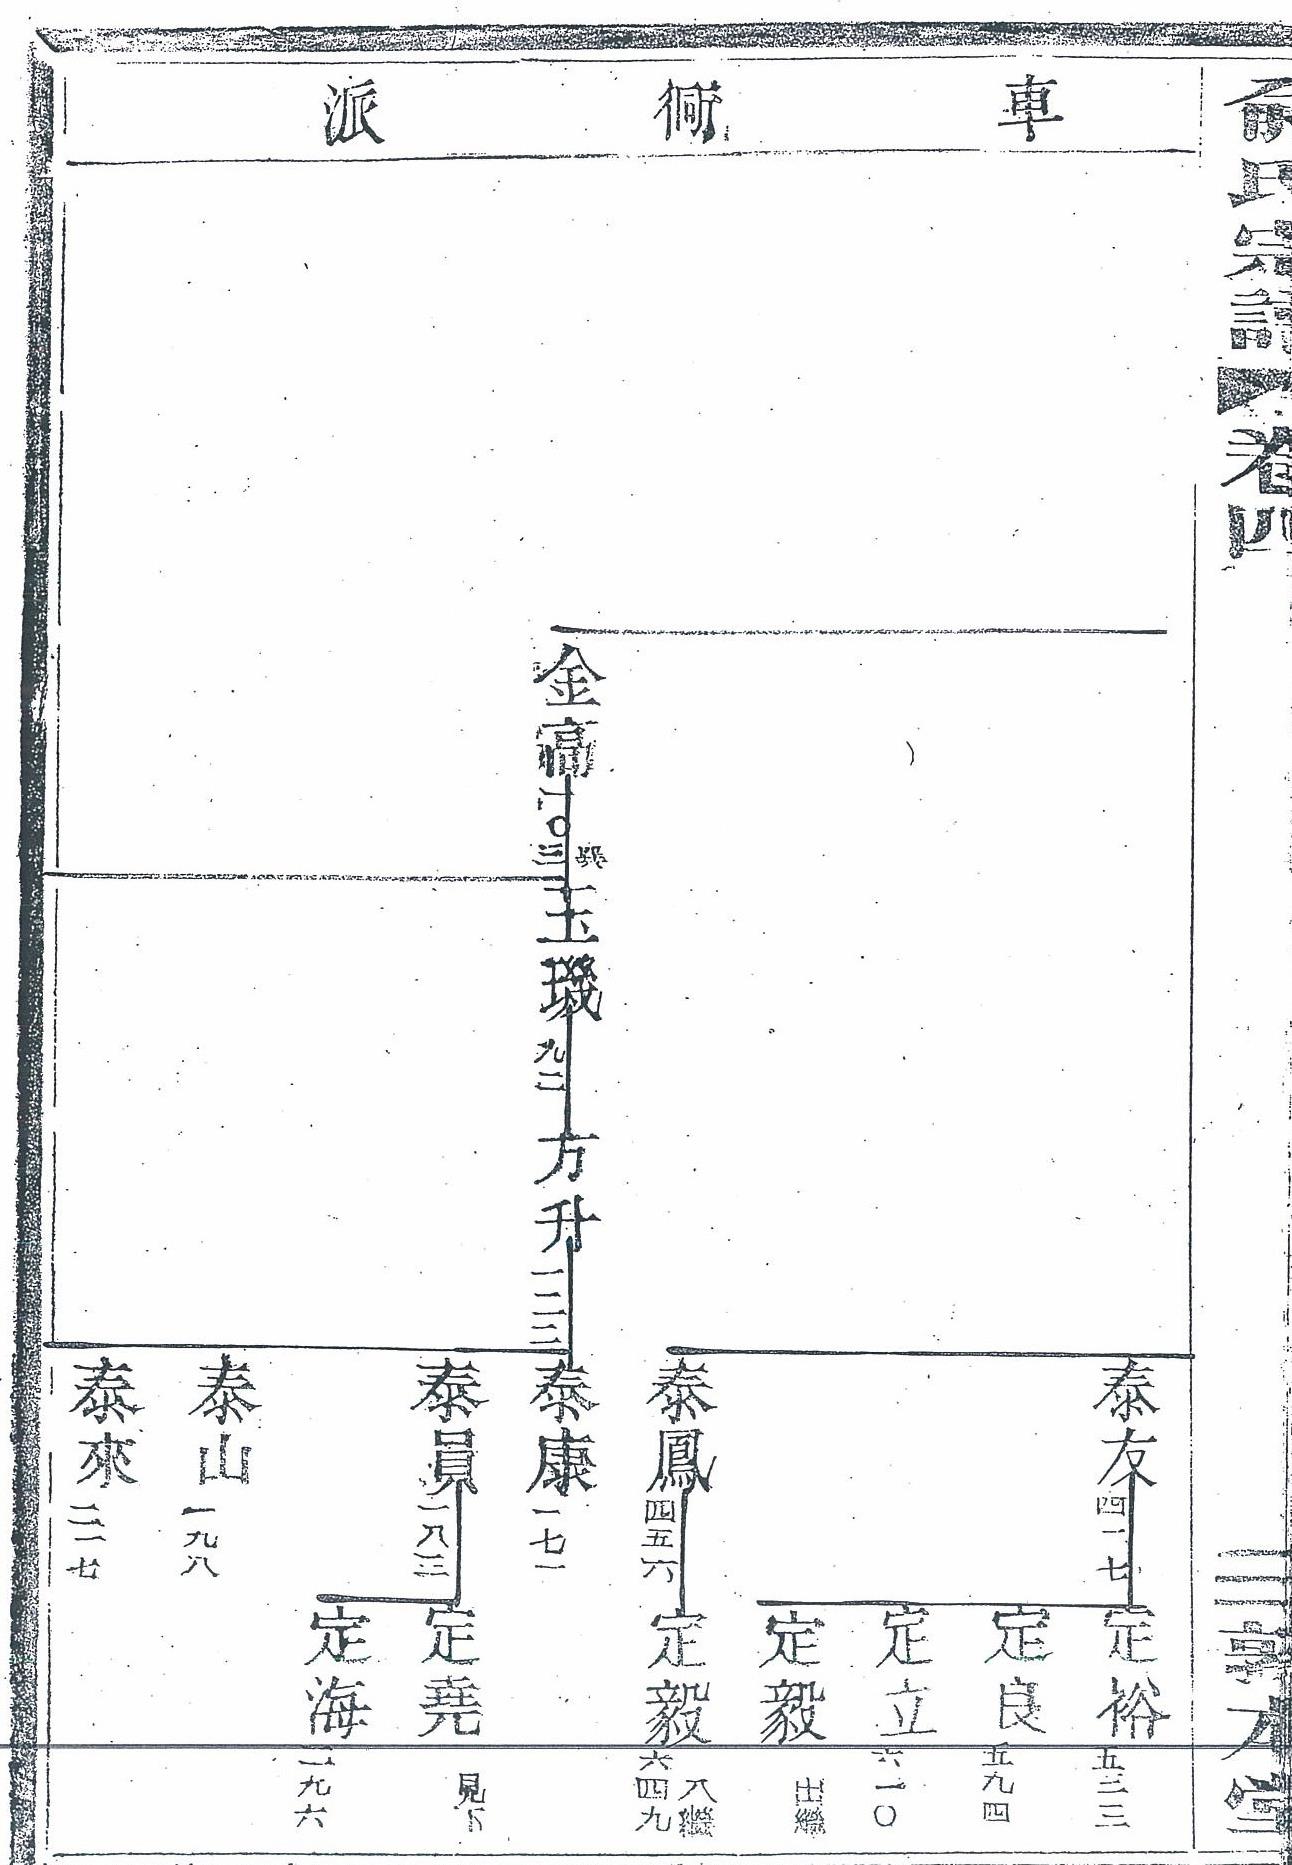 俞氏宗譜
卷四
三
敦本堂
車衕派
金高
一〇三
巽
玉璣
九二
方升
一二三
泰友
四一七
泰鳳
四五六
泰康
一七一
泰員
一八三
泰山
一九八
泰來
二一七
定裕
五三三
定良
五九四
定立
六一〇
定毅
出繼
定毅
六四九
入繼
定堯
見下
定海
二九六